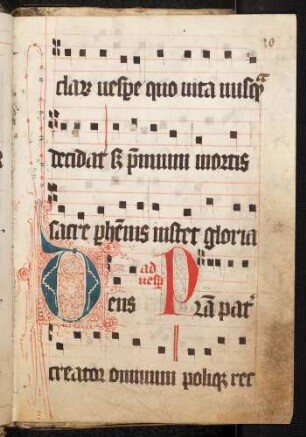 20
clare uespe quo uita nusq̃
decidat s̄ p̄mium mortis
sacre phēnis instet gloria
Deus ad uesp̄ P rā pat̃
creator omnium poliq̃ rec